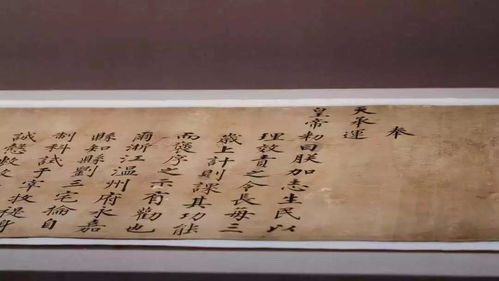 奉
天承運
皇帝勅曰朕加志生民以
理效責之令長每三
歲上計則課其功能
而褒序之示有勸也
爾浙江溫州府永嘉
縣知縣劉三宅掄自
制科試于宰牧褆身
誠懇敷